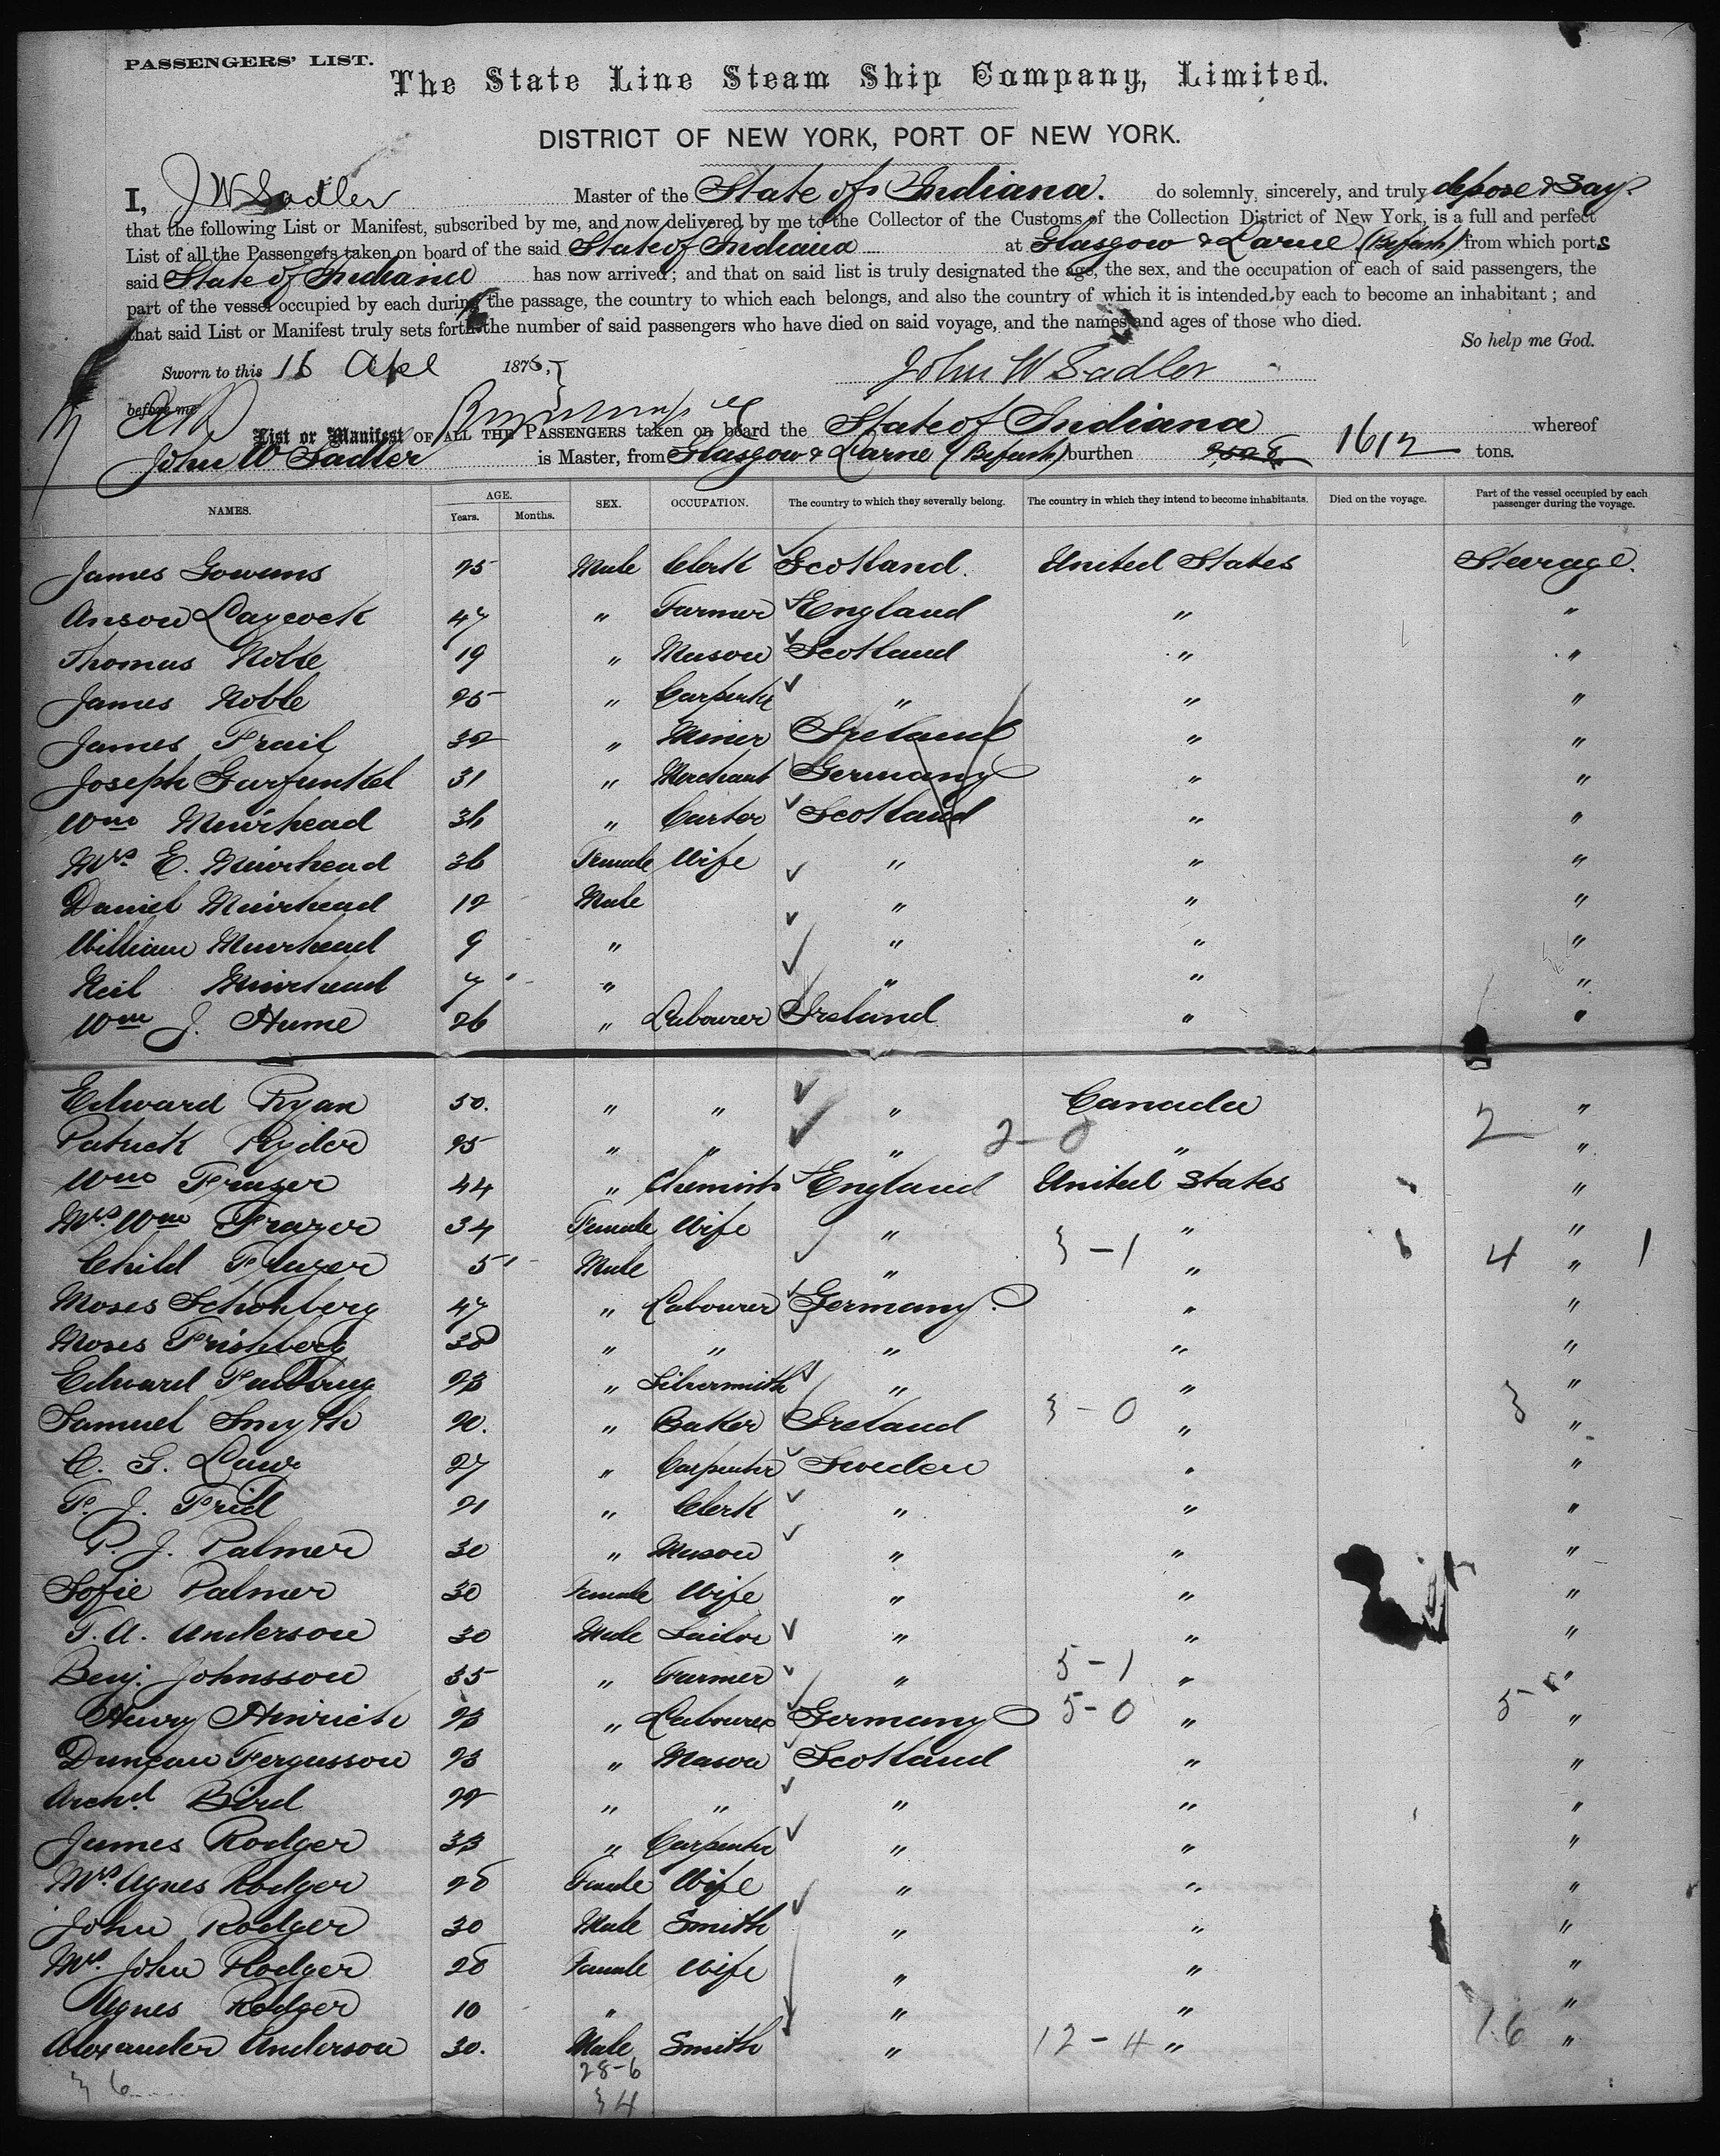 PASSENGERS' LIST.
The State Line Steam Ship Company, Limited.
DISTRICT OF NEW YORK, PORT OF NEW YORK.
I, J W Sadler Master of the State of Indiana. do solemnly, sincerely, and truly depose & say.
that the following List or Manifest, subscribed by me, and now delivered by me to the Collector of the Customs of the Collection District of New York, is a full and perfect
List of all the Passengers taken on board of the said State of Indiana at Glasgow & Larne (Belfast) from which ports
said State of Indiana has now arrived; and that on said list is truly designated the age, the sex, and the occupation of each of said passengers, the
part of the vessel occupied by each during the passage, the country to which each belongs, and also the country of which it is intended by each to become an inhabitant; and
that said List or Manifest truly sets forth the number of said passengers who have died on said voyage, and the names and ages of those who died.
So help me God.
Sworn to this 15 Apl 1875,
John W Sadler
before me
List or Manifest OF ALL THE PASSENGERS taken on board the State of Indiana whereof
John W Sadler is Master, from Glasgow & Larne (Belfast) burthen 1612 tons.
NAMES. AGE. Years. Months. SEX. OCCUPATION. The country to which they severally belong. The country in which they intend to become inhabitants. Died on the voyage. Part of the vessel occupied by each passenger during the voyage.
James Gowans 25 Male Clerk Scotland. United States Steerage.
Anson Laycock 47 " Farmer England " "
Thomas Noble 19 " Mason Scotland " "
James Noble 25 " Carpenter " " "
James Frail 32 " Miner Ireland " "
Joseph Garfunkel 31 " Merchant Germany " "
Wm Muirhead 36 " Carter Scotland " "
Mrs E. Muirhead 36 Female Wife " " "
Daniel Muirhead 12 Male " " "
William Muirhead 9 " " " "
Neil Muirhead 7 " " " "
Wm J. Hume 26 " Labourer Ireland " "
Edward Ryan 50. " " " Canada "
Patrick Ryder 25 " " " 2-0 " 2 "
Wm Frazer 44 " Chemist England United States "
Mrs Wm Frazer 34 Female Wife " " "
Child Frazer 5 Male " 3-1 " 4 " 1
Moses Schonberg 47 " Labourer Germany. " "
Moses Frishberg 30 " " " " "
Edward 23 " Silversmith " " "
Samuel Smyth 20. " Baker Ireland 3-0 " 3 "
C. G. Law 27 " Carpenter Sweden " "
F. J. Frid 21 " Clerk " " "
P. J. Palmer 30 " Mason " " "
Sofie Palmer 30 Female Wife " " "
T. A. Anderson 30 Male Sailor " " "
Benj. Johnsson 35 " Farmer " 5-1 " "
Henry Hinrich 23 " Labourer Germany 5-0 " 5 "
Duncan Fergusson 23 " Mason Scotland " "
Archd Bird 22 " " " " "
James Rodger 33 " Carpenter " " "
Mrs Agnes Rodger 28 Female Wife " " "
John Rodger 30 Male Smith " " "
Mrs John Rodger 28 Female Wife " " "
Agnes Rodger 10 " " " "
Alexander Anderson 30. Male Smith " 12-4 " 16 "
36 28-6
34